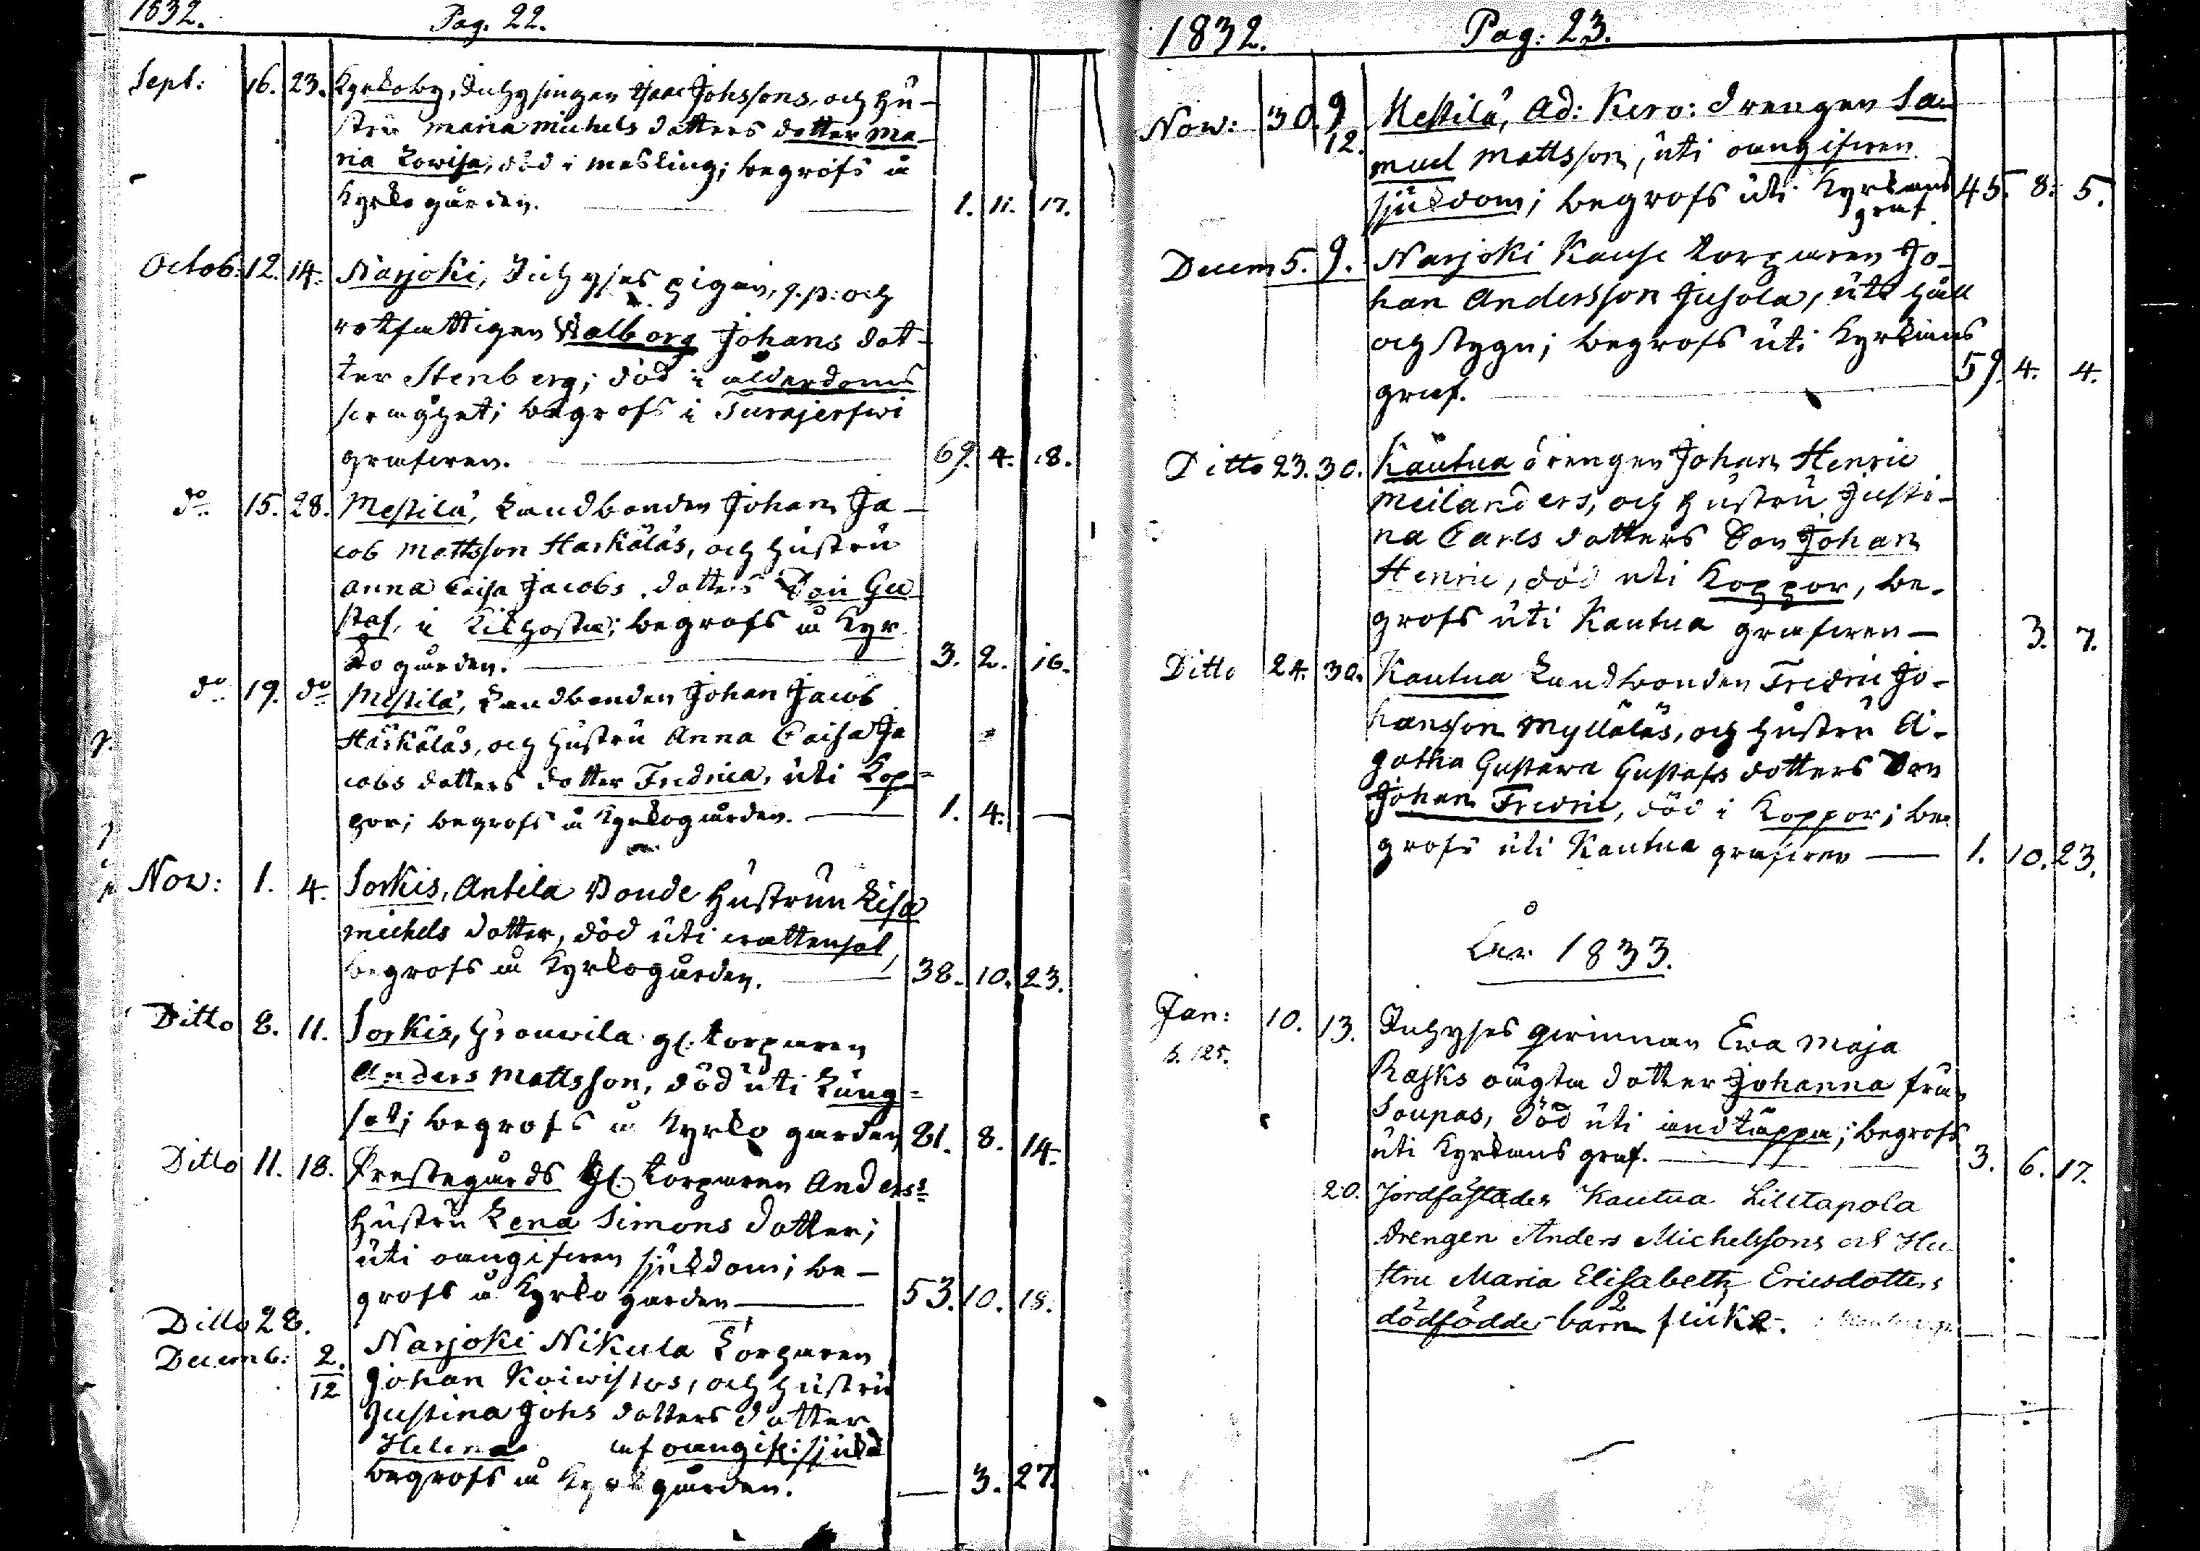 1832. Pag. 22.
Sept: 16. 23. Kyrkoby, Inhysingen Isaac Johssons, och Hu-
stru Maria Michels dotters dotter Ma-
ria Lowisa, död i Mesling; begrofs å
Kyrkogården. 1. 11. 17.
Octob: 12. 14. Narjoki, Inhyses pigan, q.p: och
rotfattigen Walborg Johans dot-
ter Stenberg; död i ålderdoms
begrofs i Turajerfwi
grafwen. 69. 4. 18.
do 15. 28. Mestilä, Landbonden Johan Ja-
cob Mattsson Harkäläs, och Hustru
Anna Caisa Jacobs dotters Son Gu
staf, i Kikhosta; begrofs å Kyr
kogården. 3. 2. 16.
do 19. do Mestilä, Landbonden Johan Jacob
Härkäläs, och Hustru Anna Caisa Ja
cobs dotters dotter Fredrica, uti Kop=
por; begrofs å Kyrkogården. 1. 4. —
Now: 1. 4. Sorkis, Antila Bonde Hustrun Lisa
Michels dotter, död uti wattensot,
begrofs å Kyrkogården. 38. 10. 23.
Ditto 8. 11. Sorkis, gl. torparen
Anders Mattsson, död uti Lung=
sot; begrofs å Kyrko gården 81. 8. 14.
Ditto 11. 18. Prestegårds gl. torparen Anders
Hustru Lena Simons dotter;
uti oangifwen sjukdom; be-
grofs å Kyrko gården 53. 10. 18.
Ditto 28.
Decemb: 2/12 Narjoki Nikula Torparen
Johan Koiwistos, och Hustru
Justina Johs dotters dotter
Helena af oangif: sjukd
begrofs å Kyrkgården. — 3. 27.
1832. Pag: 23.
Now: 30. 9/12. Mestilä, Ad: Kero: drengen Sa-
muel Mattsson, uti oangifwen
sjukdom; begrofs uti Kyrkans
graf 45. 8. 5.
Decem 5. 9. Narjoki Kause torparen Jo-
han Andersson Jusola, uti håll
och stygn; begrofs uti Kyrkans
graf. 59. 4. 4.
Ditto 23. 30. Kautua drengen Johan Henric
Meilanders, och Hustru Justi-
na Carls dotters Son Johan
Henric, död uti Koppor, be-
grofs uti Kautua grafwen — 3. 7.
Ditto 24. 30. Kautua Landbonden Fredric Jo-
hansson Mylläläs, och Hustru A-
gatha Gustawa Gustafs dotters Son
Johan Fredric, död i Koppor; be-
grofs uti Kautua grafwen — 1. 10. 23.
År 1833.
Jan: 10. 13. Inhyses qwinnan Ewa Maja
s. 125. Rasks oägta dotter Johanna från
Soupas, död uti andtäppa; begrofs
uti Kyrkans graf. 3. 6. 17.
20. Jordfästades Kautua Lilltapola
drengen Anders Michelssons och Hu
stru Maria Elisabeth Ericsdotters
dödfödde 2 barn flick